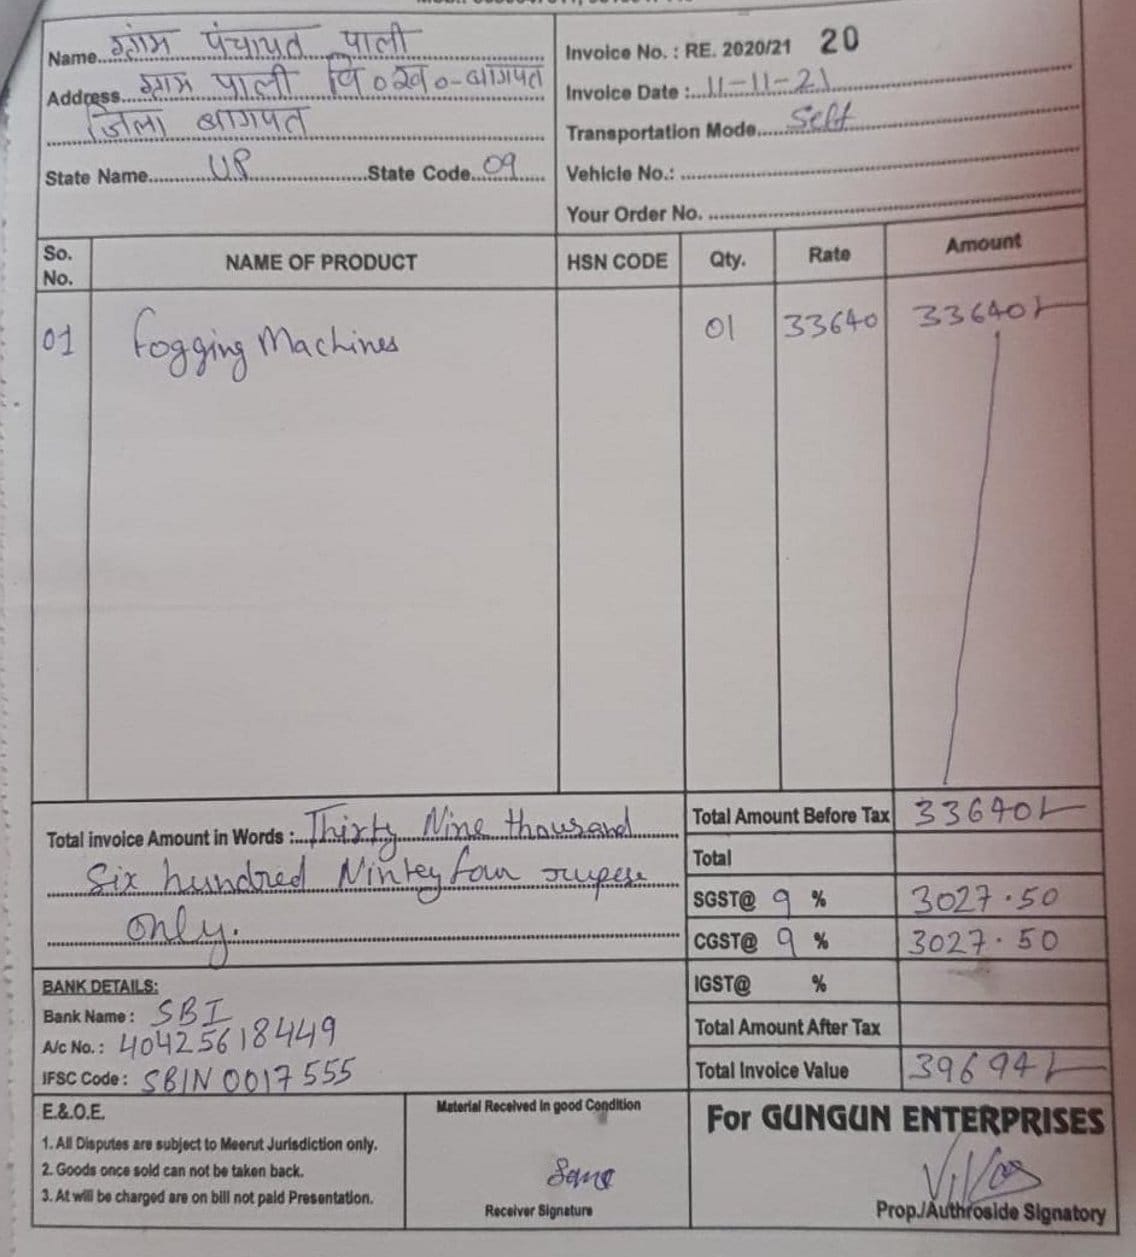 Name ग्राम पंचायत पाली
Address ग्राम पाली वि०ख०-बागपत
जिला बागपत
State Name UP State Code 09
Invoice No. : RE. 2020/21 20
Invoice Date : 11-11-21
Transportation Mode Self
Vehicle No.:
Your Order No.
So. No. NAME OF PRODUCT HSN CODE Qty. Rate Amount
01 Fogging Machines 01 33640 33640/-
Total invoice Amount in Words : Thirty Nine thousand
Six hundred Nintey four rupese
only.
Total Amount Before Tax 33640/-
Total
SGST@ 9 % 3027.50
CGST@ 9 % 3027.50
IGST@ %
Total Amount After Tax
Total Invoice Value 39694/-
BANK DETAILS:
Bank Name : SBI
A/c No. : 40425618449
IFSC Code : SBIN0017555
E.&.O.E.
1. All Disputes are subject to Meerut Jurisdiction only.
2. Goods once sold can not be taken back.
3. At will be charged are on bill not paid Presentation.
Material Received In good Condition
Receiver Signature
For GUNGUN ENTERPRISES
Prop./Authroside Signatory